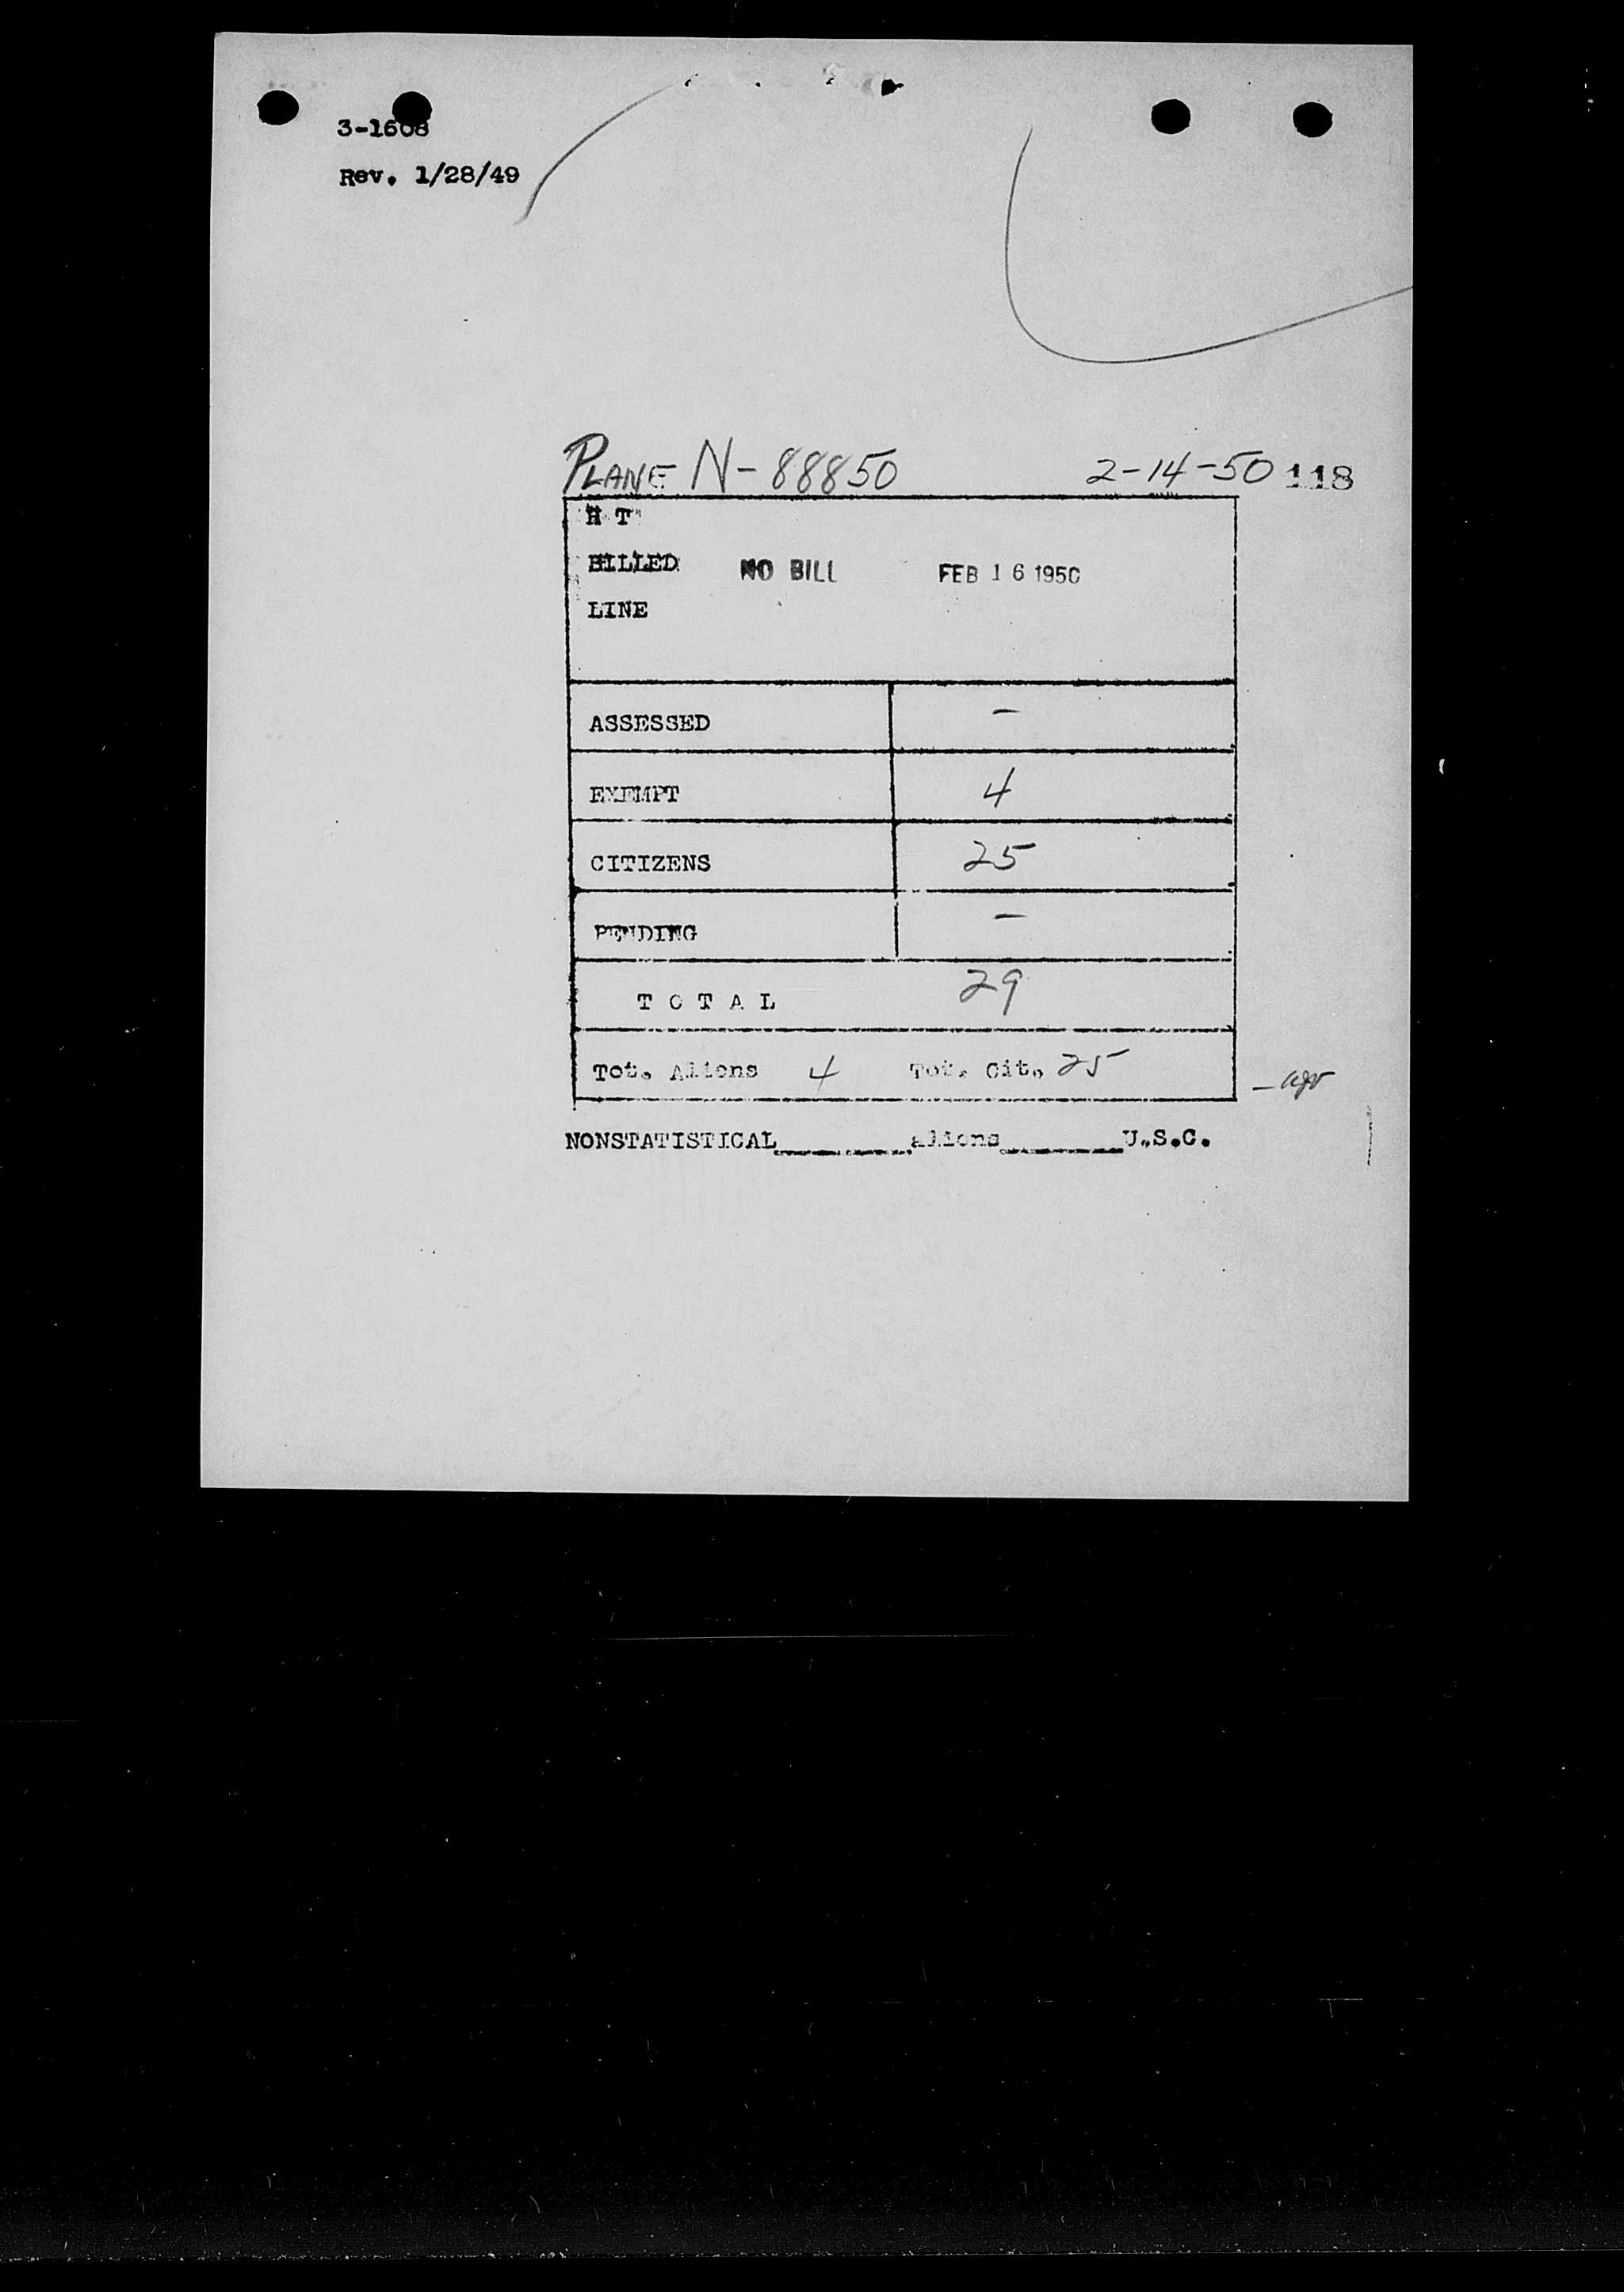 3-1608
Rev. 1/28/49
PLANE N-88850 2-14-50 118
H T
BILLED NO BILL FEB 16 1950
LINE
ASSESSED —
EXEMPT 4
CITIZENS 25
PENDING —
TOTAL 29
Tot. Aliens 4 Tot. Cit. 25
NONSTATISTICAL______aliens______U.S.C.